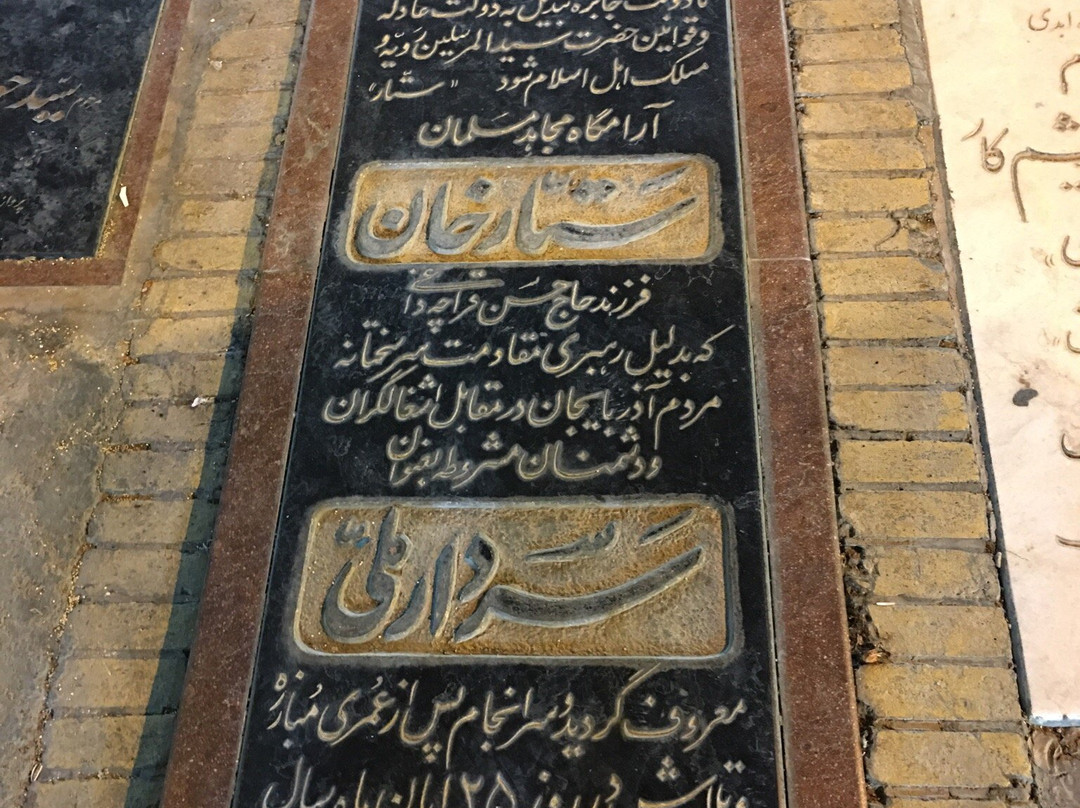 تا دولت جابره تبدیل به دولت عادله
و قوانین حضرت سید المرسلین رویه و
مسلک اهل اسلام شود "ستار"
آرامگاه مجاهد مسلمان
ستارخان
فرزند حاج حسن قراچه داغی
که بدلیل رهبری مقاومت سرسختانه
مردم آذربایجان در مقابل اشغالگران
و دشمنان مشروطه بعنوان
سردار ملی
معروف گردید و سرانجام پس از عمری مبارزه
و تلاش در روز ۲۵ آبان ماه سال
سید
ابدی